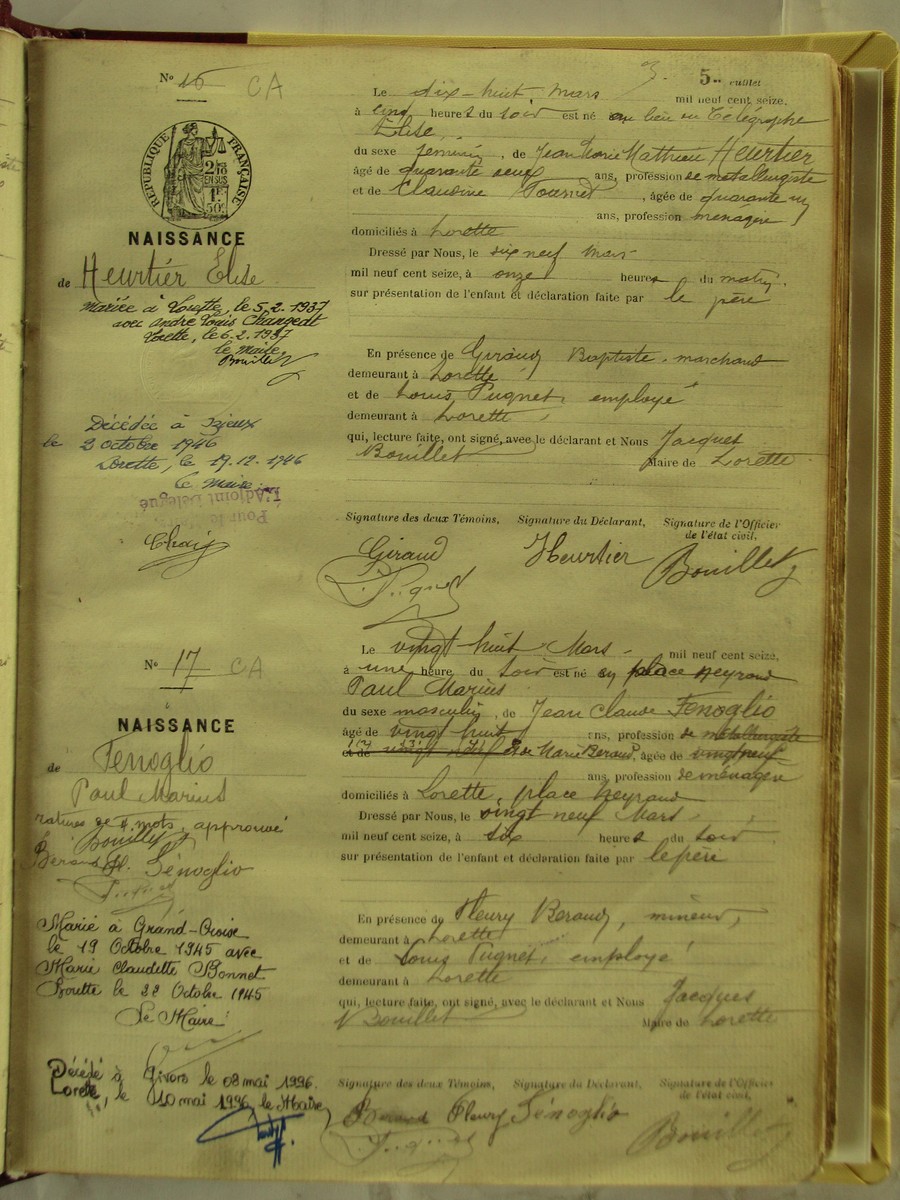 5.. Feuillet
N° 16 CA
Le dix-huit mars mil neuf cent seize,
à cinq heures du soir est né au lieu du Télégraphe
Elise,
du sexe féminin, de Jean Marie Mathieu Heurtier
âgé de quarante deux ans, profession de métallurgiste
et de Claudine Fournet, âgée de quarante un
ans, profession ménagère
domiciliés à Lorette
Dressé par Nous, le dix neuf mars
mil neuf cent seize, à onze heures du matin,
sur présentation de l'enfant et déclaration faite par le père
En présence de Giraud Baptiste, marchand
demeurant à Lorette
et de Louis Pugnet, employé
demeurant à Lorette,
qui, lecture faite, ont signé, avec le déclarant et Nous Jacques
Bouillet Maire de Lorette
Signature des deux Témoins, Signature du Déclarant, Signature de l'Officier
de l'état civil.
Giraud Heurtier Bouillet
RÉPUBLIQUE FRANÇAISE
EN SUS
NAISSANCE
de Heurtier Elise
Mariée à Lorette, le 5.2.1937
avec André Louis
Lorette, le 6.2.1937
le Maire,
Bouillet
Décédée à Izieux
le 2 octobre 1946
Lorette, le 19.12.1946
le Maire,
L'Adjoint Délégué
N° 17 CA
Le vingt huit Mars mil neuf cent seize,
à une heure du soir est né place Neyrand
Paul Marius
du sexe masculin, de Jean Claude Fenoglio
âgé de vingt huit ans, profession de métallurgiste
et de Marie Beraud, âgée de vingt neuf
ans, profession de ménagère
domiciliés à Lorette, place Neyrand
Dressé par Nous, le vingt neuf Mars,
mil neuf cent seize, à six heures du soir
sur présentation de l'enfant et déclaration faite par le père
En présence de Fleury Beraud, mineur,
demeurant à Lorette
et de Louis Pugnet, employé
demeurant à Lorette
qui, lecture faite, ont signé, avec le déclarant et Nous Jacques
Bouillet Maire de Lorette
Signature des deux Témoins, Signature du Déclarant, Signature de l'Officier
de l'état civil,
Beraud Fleury Fénoglio Bouillet
NAISSANCE
de Fenoglio
Paul Marius
ratures de mots, approuvé
Bouillet
Beraud Fénoglio
Marié à Grand-Croix
le 19 Octobre 1945 avec
Marie Claudette Bonnet
le 22 Octobre 1945
Le Maire
Décédé à Givors le 08 mai 1996.
Lorette, le 10 mai 1996 le Maire,